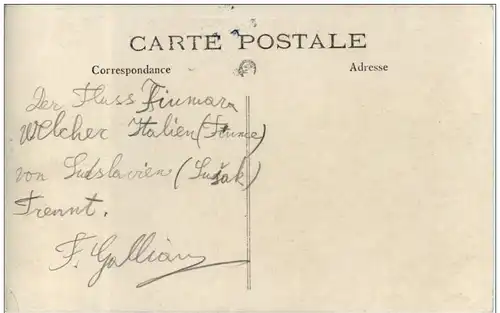 CARTE POSTALE
Correspondance
Adresse
Der Fluss Fiumara
Welcher Italien (Fiume)
von Sudslavien (Sušak)
Trennt.
F. Gallian